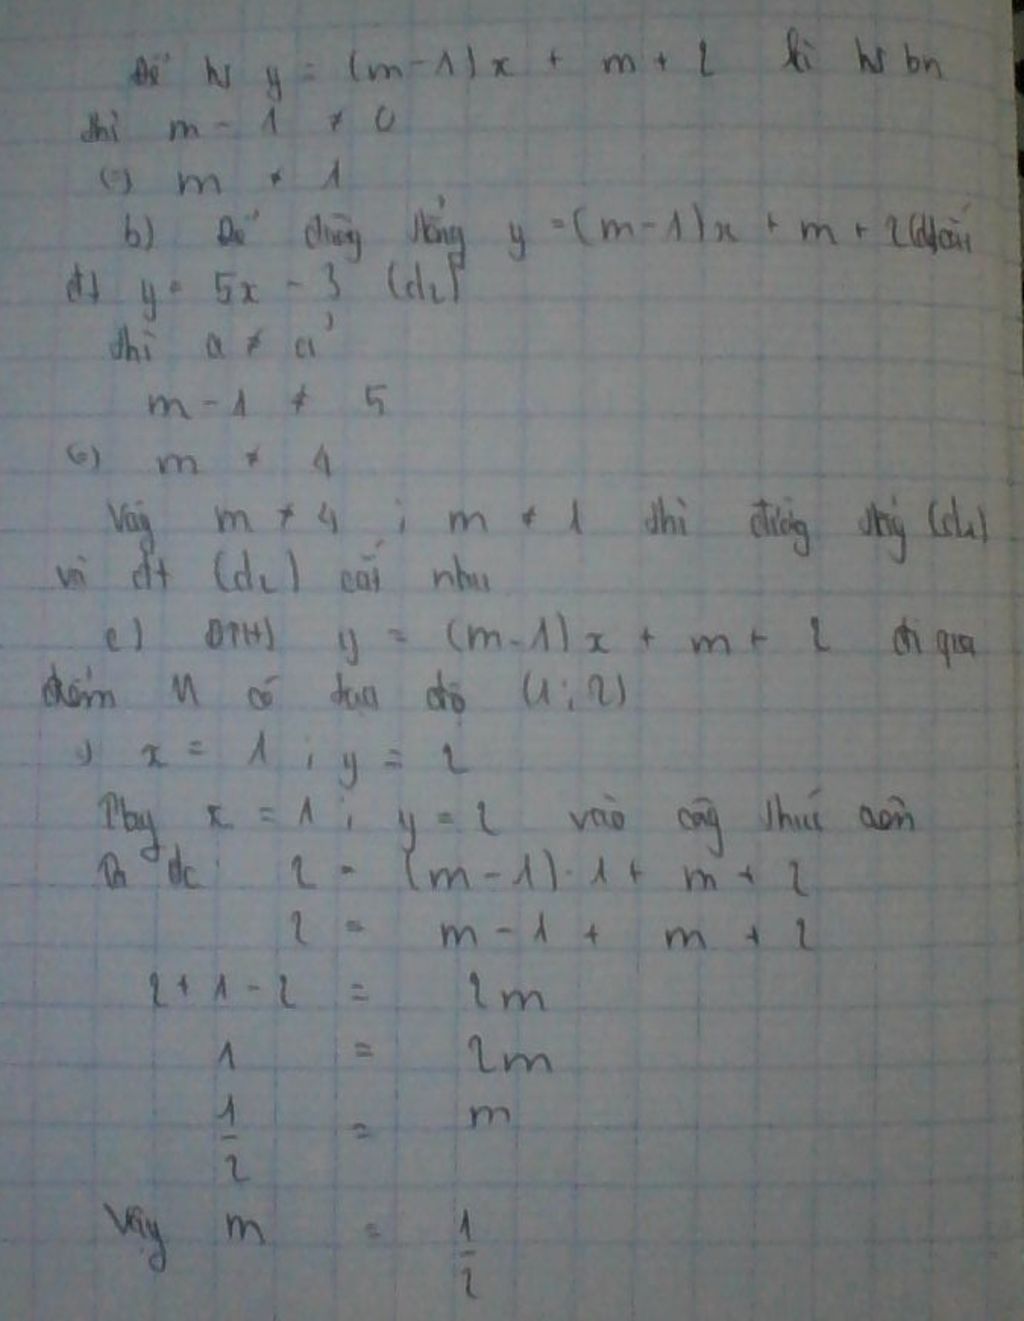 Để hs y = (m-1)x + m + 2 là hs bn
thì m - 1 ≠ 0
(=) m ≠ 1
b) Để đường thẳng y = (m-1)x + m + 2 (d1) cắt
đt y = 5x - 3 (d2)
thì a ≠ a'
m - 1 ≠ 5
(=) m ≠ 4
Vậy m ≠ 4 ; m ≠ 1 thì đường thẳng (d1)
và đt (d2) cắt nhau
c) ĐTHS y = (m-1)x + m + 2 đi qua
điểm M có tọa độ (1;2)
=) x = 1 ; y = 2
Thay x = 1 ; y = 2 vào công thức
Ta đc: 2 = (m-1).1 + m + 2
2 = m - 1 + m + 2
2 + 1 - 2 = 2m
1 = 2m
1/2 = m
Vậy m = 1/2